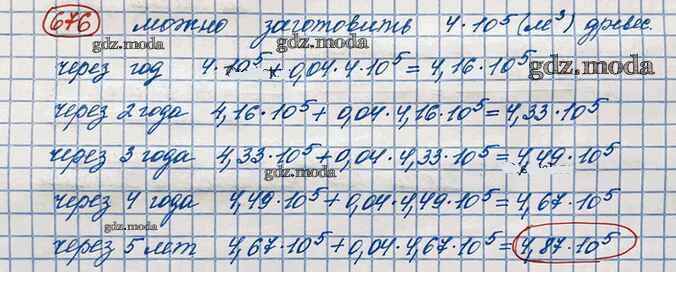 676 можно заготовить 4·10⁵ (м³) древес.
gdz.moda gdz.moda
через год 4·10⁵ + 0,04·4·10⁵ = 4,16·10⁵ gdz.moda
gdz.moda
через 2 года 4,16·10⁵ + 0,04·4,16·10⁵ = 4,33·10⁵
через 3 года 4,33·10⁵ + 0,04·4,33·10⁵ = 4,49·10⁵
gdz.moda
через 4 года 4,49·10⁵ + 0,04·4,49·10⁵ = 4,67·10⁵
через 5 лет 4,67·10⁵ + 0,04·4,67·10⁵ = 4,87·10⁵
gdz.moda